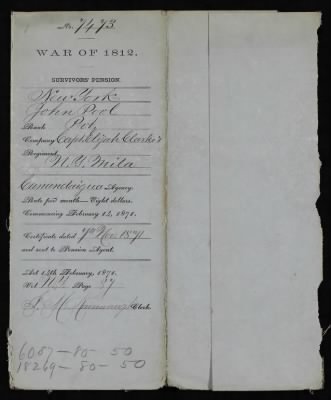 No. 7473
WAR OF 1812.
SURVIVORS' PENSION.
New York
John Pool
Rank Pvt
Company Capt Elijah Clark's
Regiment
N.Y. Mila
Canandaigua Agency.
Rate per month—Eight dollars.
Commencing February 14, 1871.
Certificate dated 7th Nov 1871
and sent to Pension Agent.
Act 14th February, 1871.
Vol. Page 37
Clerk.
6087-80-50
18269-80-50